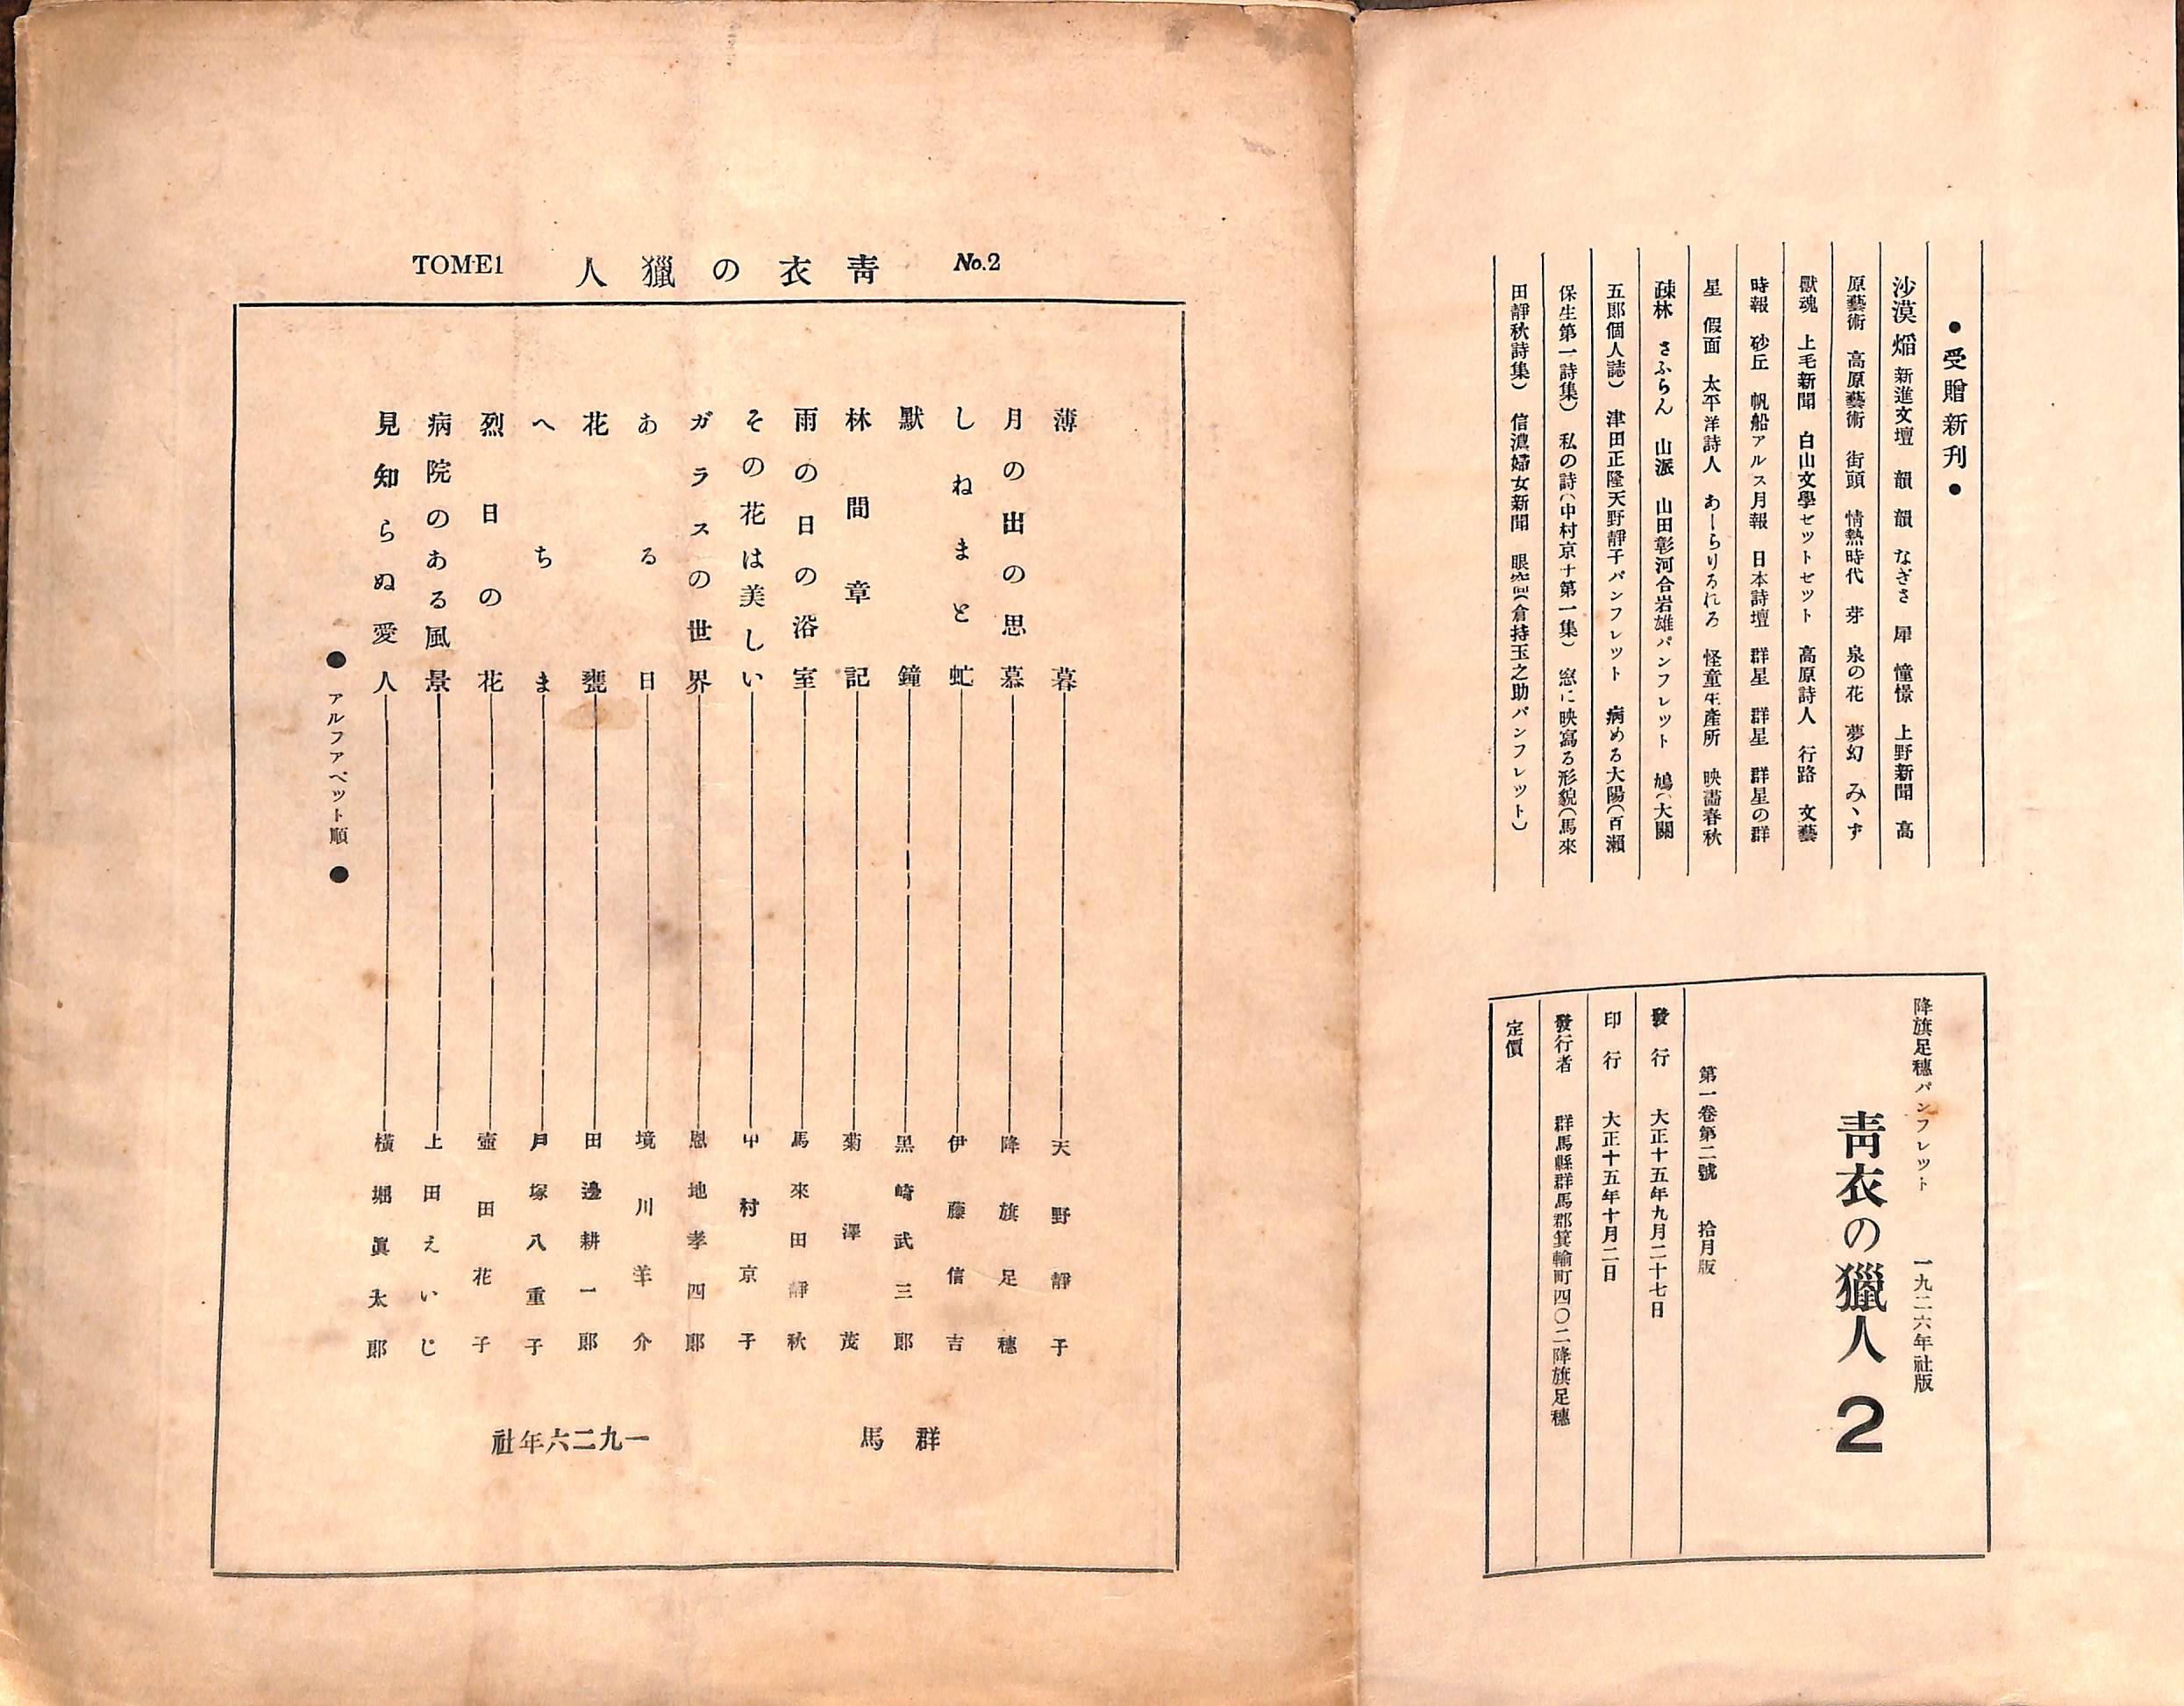 ●受贈新刊●
沙漠 焰 新進文壇 韻 韻 なぎさ 犀 憧憬 上野新聞 高
原藝術 高原藝術 街頭 情熱時代 芽 泉の花 夢幻 みゝず
獸魂 上毛新聞 白山文學セツトセツト 高原詩人 行路 文藝
時報 砂丘 帆船アルス月報 日本詩壇 群星 群星 群星の群
星 假面 太平洋詩人 あーらりろれろ 怪童生產所 映畵春秋
疎林 さふらん 山派 山田彰河合岩雄パンフレツト 鳩(大關
五郎個人誌) 津田正隆天野靜子パンフレツト 病める大陽(百瀨
保生第一詩集) 私の詩(中村京子第一集) 窓に映寫る形貌(馬來
田靜秋詩集) 信濃婦女新聞 眼窩(倉持玉之助パンフレツト)
降旗足穗パンフレツト 一九二六年社版
靑衣の獵人 2
第一卷第二號 拾月版
發行 大正十五年九月二十七日
印行 大正十五年十月二日
發行者 群馬縣群馬郡箕輪町四〇二降旗足穗
定價
No.2 靑衣の獵人 TOME1
薄暮 天野靜子
月の出の思慕 降旗足穗
しねまと虻 伊藤信吉
默鐘 黑崎武三郎
林間章記 菊澤茂
雨の日の浴室 馬來田靜秋
その花は美しい 中村京子
ガラスの世界 恩地孝四郎
ある日 境川羊介
花甕 田邊耕一郎
へちま 月塚八重子
烈日の花 壺田花子
病院のある風景 上田えいじ
見知らぬ愛人 橫堀眞太郎
●アルフアベツト順●
群馬 一九二六年社